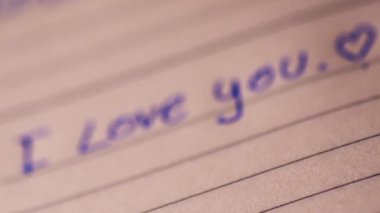 I Love you. ♡